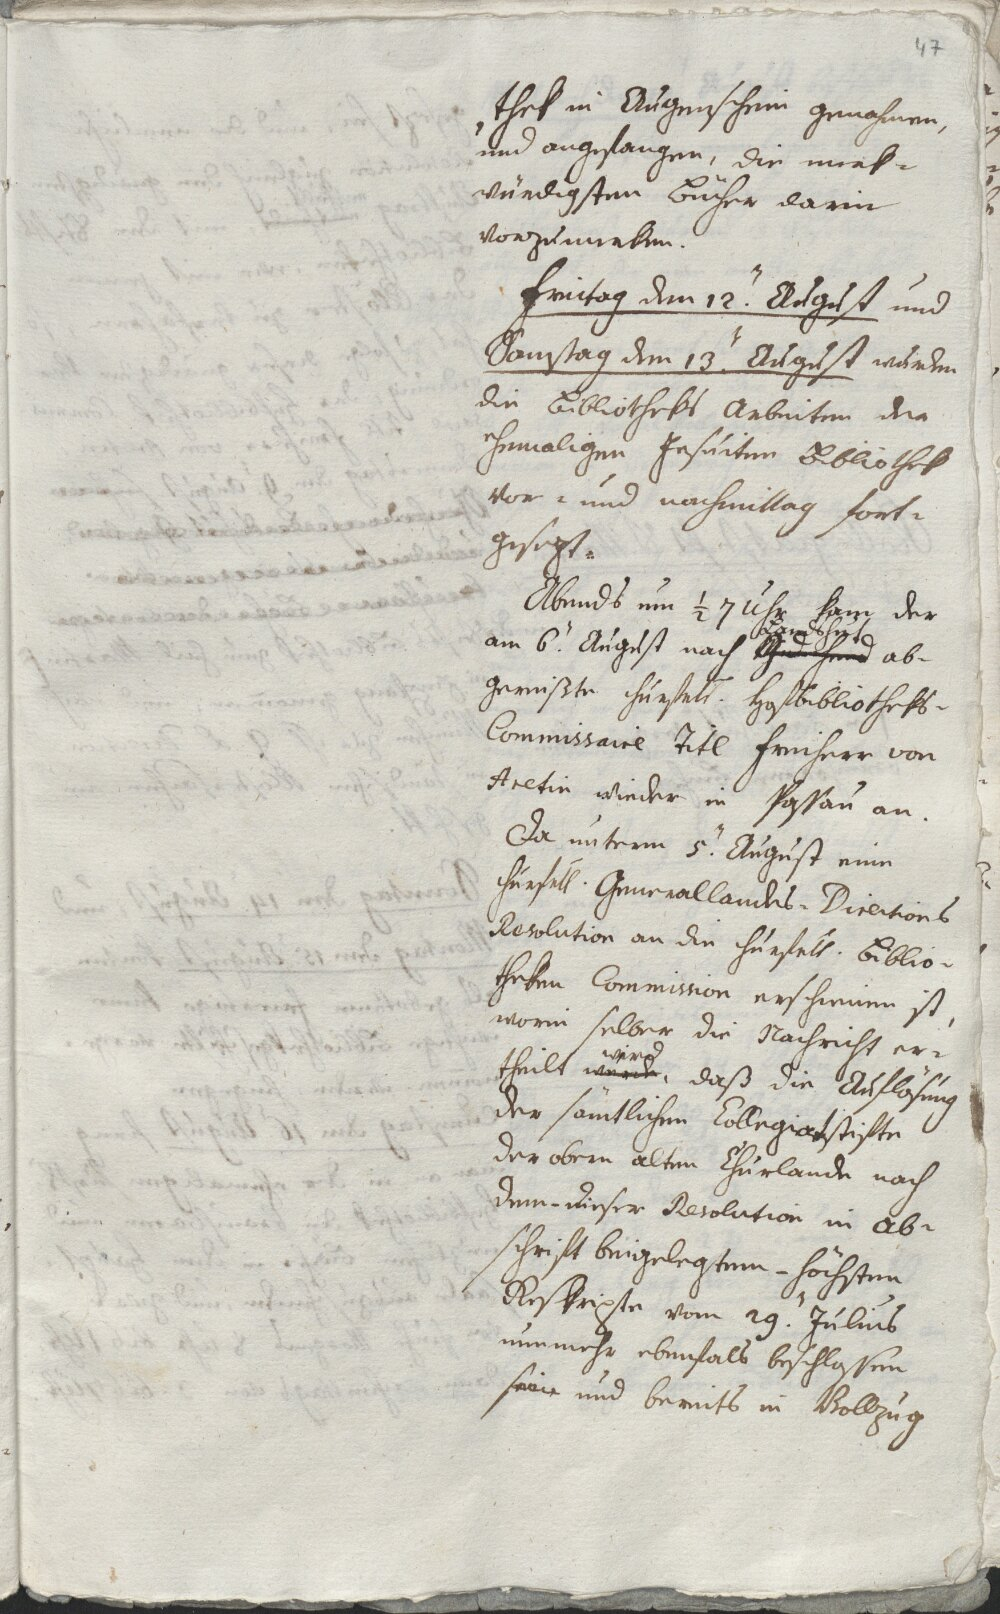 47
thek in Augenschein genohmen,
und angefangen, die merk-
würdigsten Bücher darin
vorzumerken.
Freitag den 12.n August und
Samstag den 13.n August wurden
die Bibliotheks Arbeiten der
ehemaligen Jesuiten Bibliothek
vor- und nachmittag fort-
gesezt.
Abends um ½ 7 Uhr kam der
Landshut
am 6.n August nach ab-
gereißte churfstl. Hofbibliotheks-
Commissaire Titl Freiherr von
Aretin wieder in Passau an.
Da unterm 5.n August eine
churfstl. Generallandes-Directions
Resolution an die churfstl. Biblio-
theken Commission erschienen ist,
worin selber die Nachricht er-
wird
theilt wurde, daß die Auflösung
der sämtlichen Collegiatstifte
der obern alten Churlande nach
dem-dieser Resolution in Ab-
schrift beigelegtem-höchsten
Reskripte vom 29.n Julius
nunmehr ebenfals beschlossen
seie und bereits in Vollzug